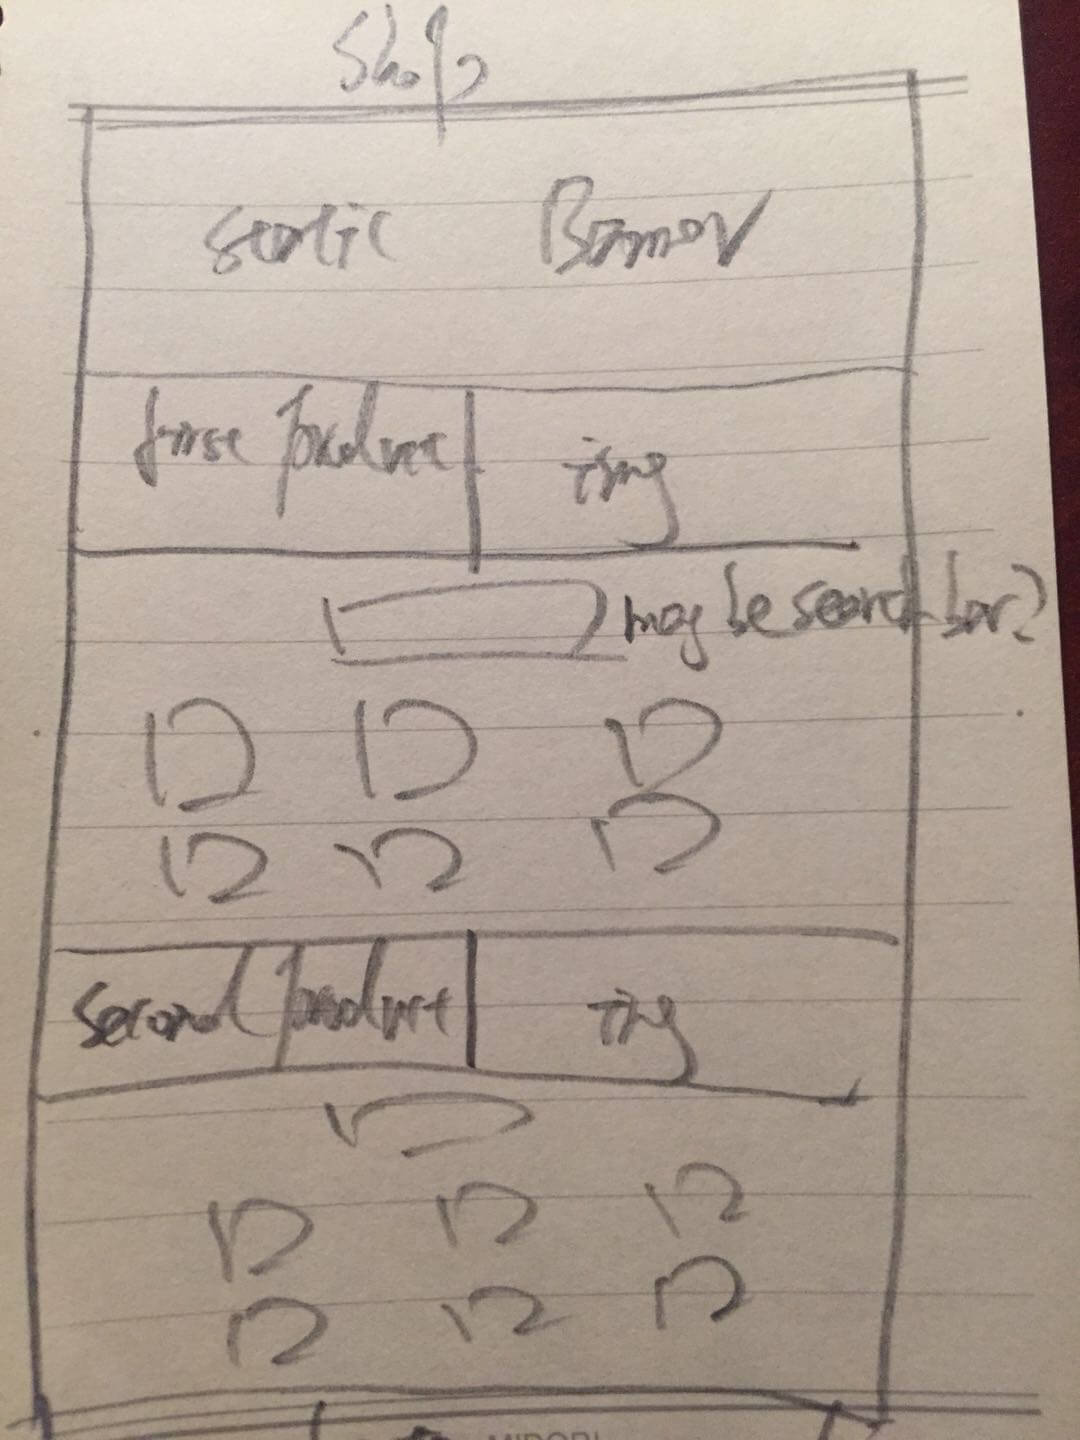 Shop
static Banner
first product img
maybe search bar?
second product img
MIDORI